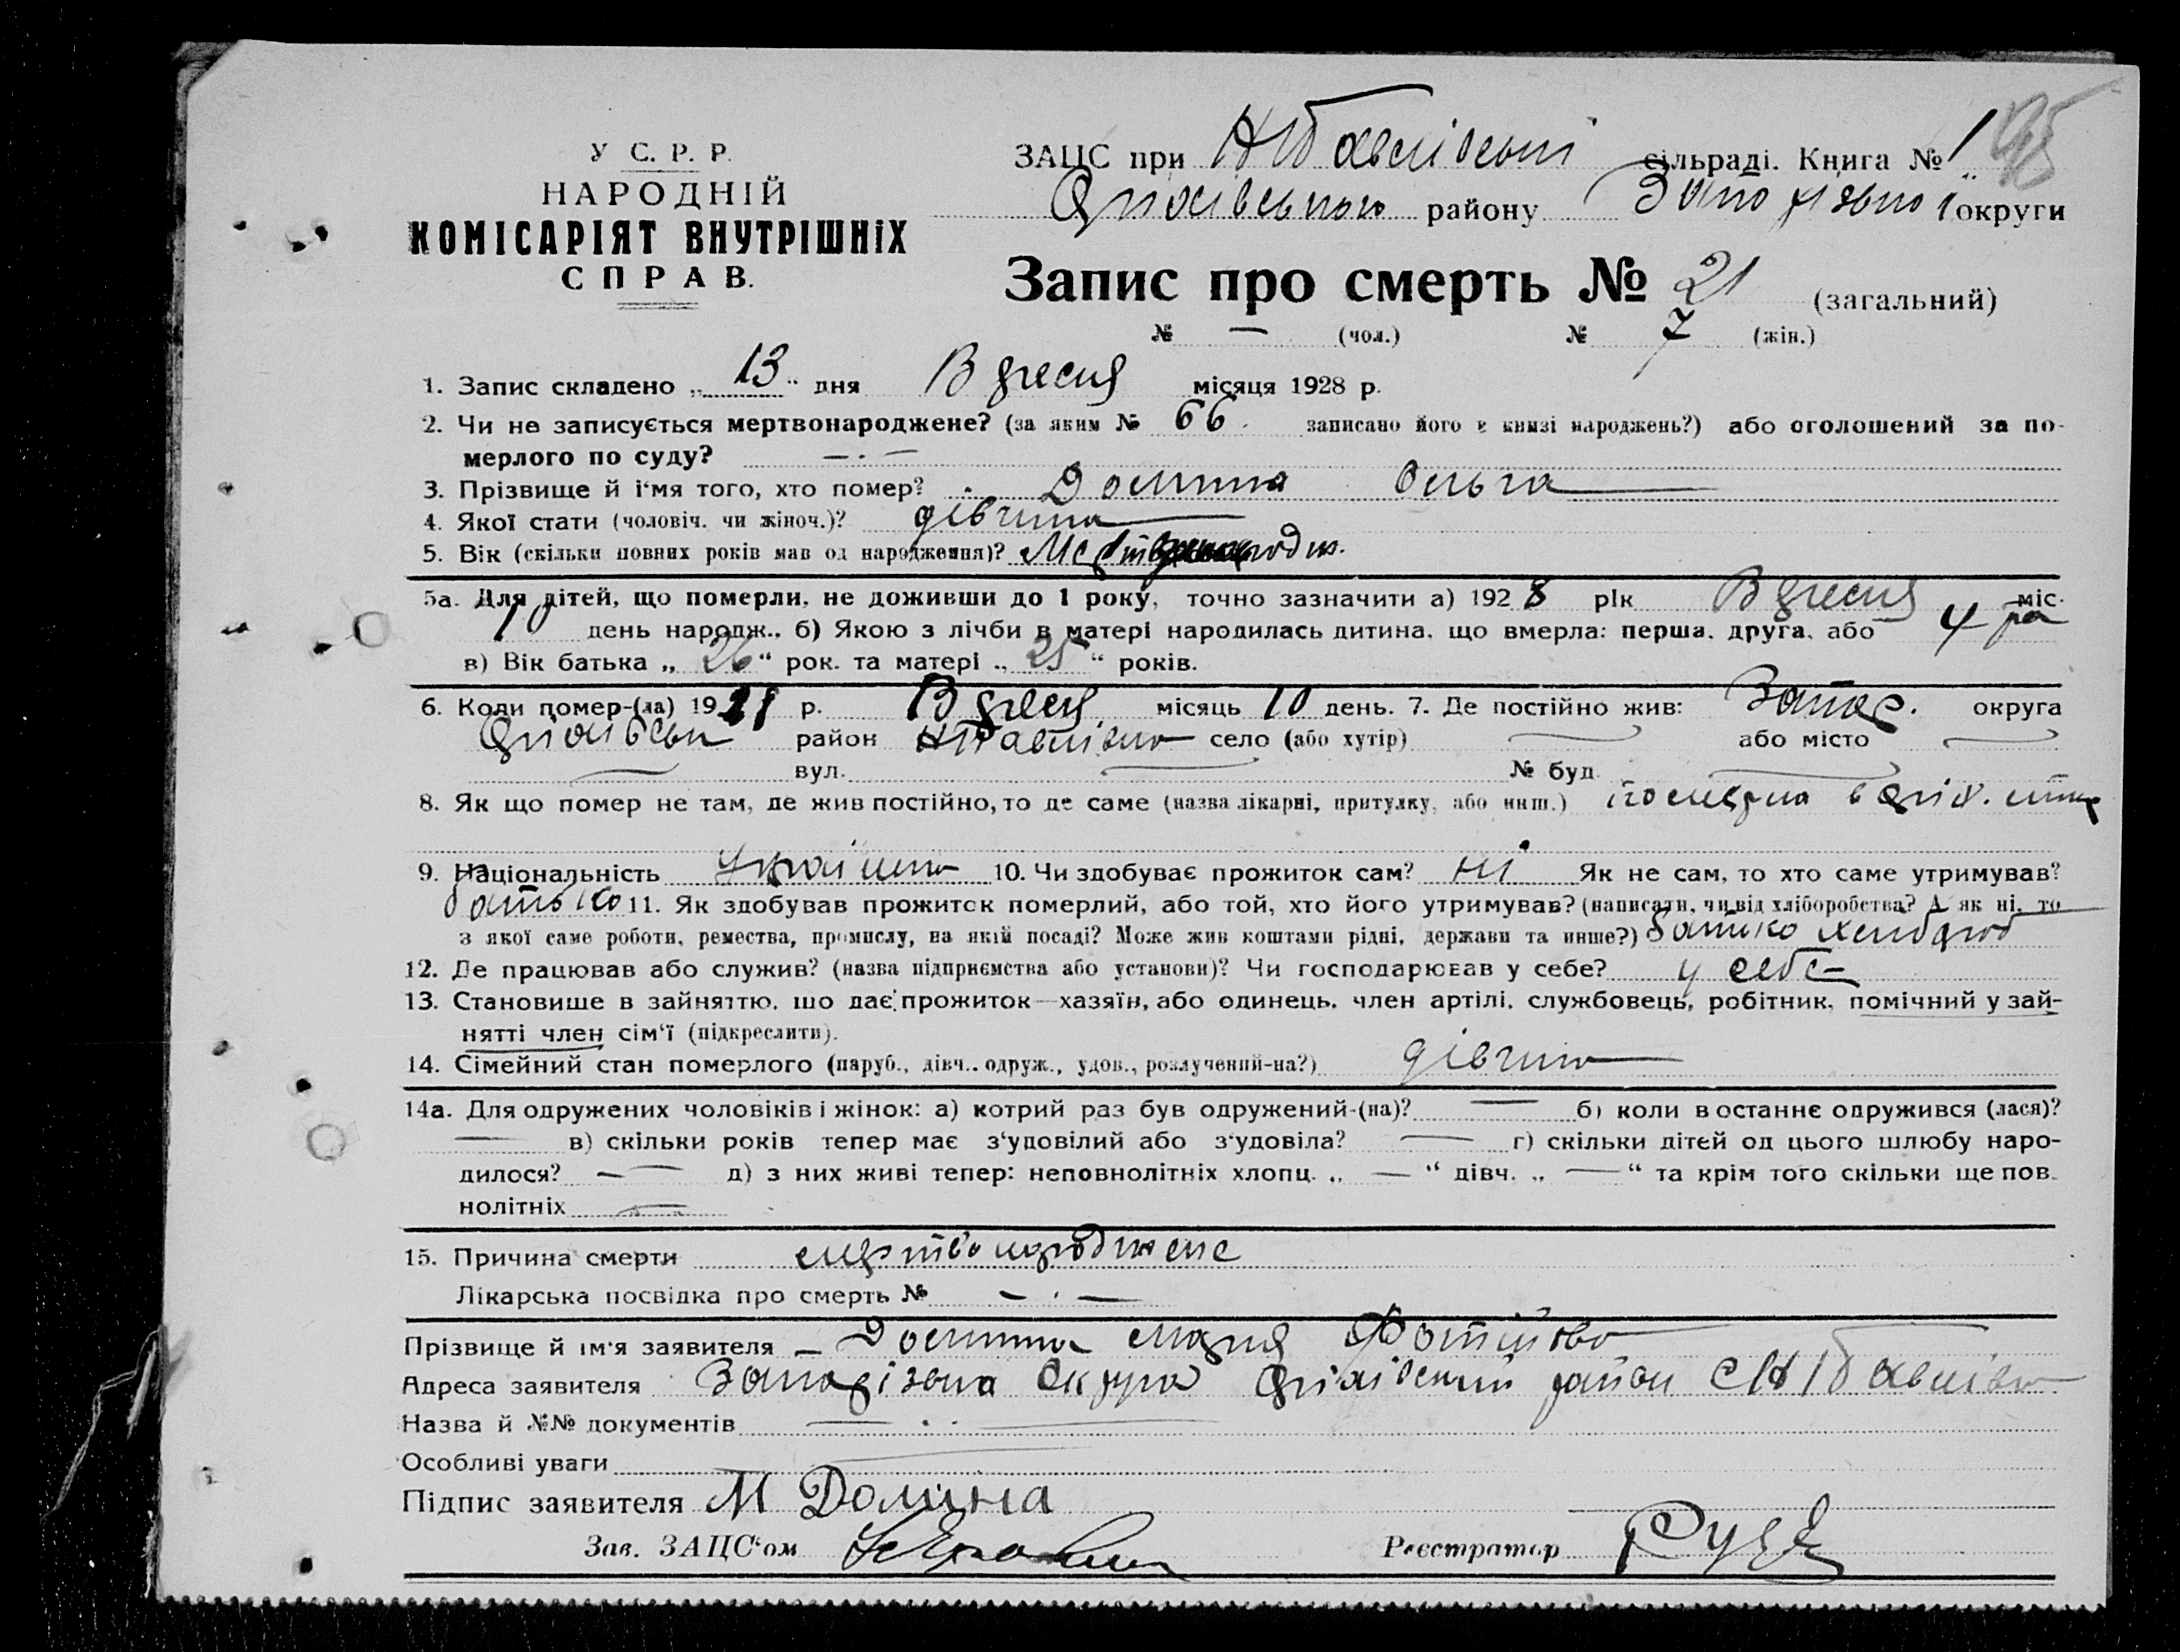 У С. Р. Р.
НАРОДНІЙ
КОМІСАРІЯТ ВНУТРІШНІХ
СПРАВ.
ЗАЦС при сільраді. Книга № 1
району округи
Запис про смерть № 21 (загальний)
№ — (чол.) № 7 (жін.)
1. Запис складено „ 13 “ дня Вересня місяця 1928 р.
2. Чи не записується мертвонароджене? (за яким № 66 записано його в книзі народжень?) або оголошений за по-
мерлого по суду? — . —
3. Прізвище й і'мя того, хто помер? Долина Ольга
4. Якої стати (чоловіч. чи жіноч.)? дівчина
5. Вік (скільки повних років мав од народження)?
5а. Для дітей, що померли, не доживши до 1 року, точно зазначити а) 1928 рік Вересня міс.
10 день народж., б) Якою з лічби в матері народилась дитина, що вмерла: перша, друга, або 4 ра
в) Вік батька „ 26 “ рок. та матері „ 25 “ років.
6. Коли помер-(ла) 1928 р. Вересня місяць 10 день. 7. Де постійно жив: Запор. округа
район село (або хутір) або місто
вул. № буд.
8. Як що помер не там, де жив постійно, то де саме (назва лікарні, притулку, або инш.) померла в
9. Національність Україн 10. Чи здобуває прожиток сам? ні Як не сам, то хто саме утримував?
батько 11. Як здобував прожиток померлий, або той, хто його утримував? (написати, чи від хліборобства? А як ні, то
з якої саме роботи, ремества, промислу, на якій посаді? Може жив коштами рідні, держави та инше?) батько хлібороб
12. Де працював або служив? (назва підприємства або установи)? Чи господарював у себе? у себе
13. Становище в зайняттю, що дає прожиток—хазяїн, або одинець, член артілі, службовець, робітник, помічний у зай-
нятті член сім'ї (підкреслити).
14. Сімейний стан померлого (паруб., дівч., одруж., удов., розлучений-на?) дівчина
14а. Для одружених чоловіків і жінок: а) котрий раз був одружений-(на)? — б) коли востаннє одружився (лася)?
— в) скільки років тепер має з'удовілий або з'удовіла? — г) скільки дітей од цього шлюбу наро-
дилося? — д) з них живі тепер: неповнолітніх хлопц. „ — “ дівч. „ — “ та крім того скільки ще пов.
нолітніх —
15. Причина смерти мертвонароджене
Лікарська посвідка про смерть № — . —
Прізвище й ім'я заявителя — Долина Марія Фотіївна
Адреса заявителя Запорізька округа район
Назва й №№ документів —
Особливі уваги
Підпис заявителя М Долина
Зав. ЗАЦС'ом Реєстратор